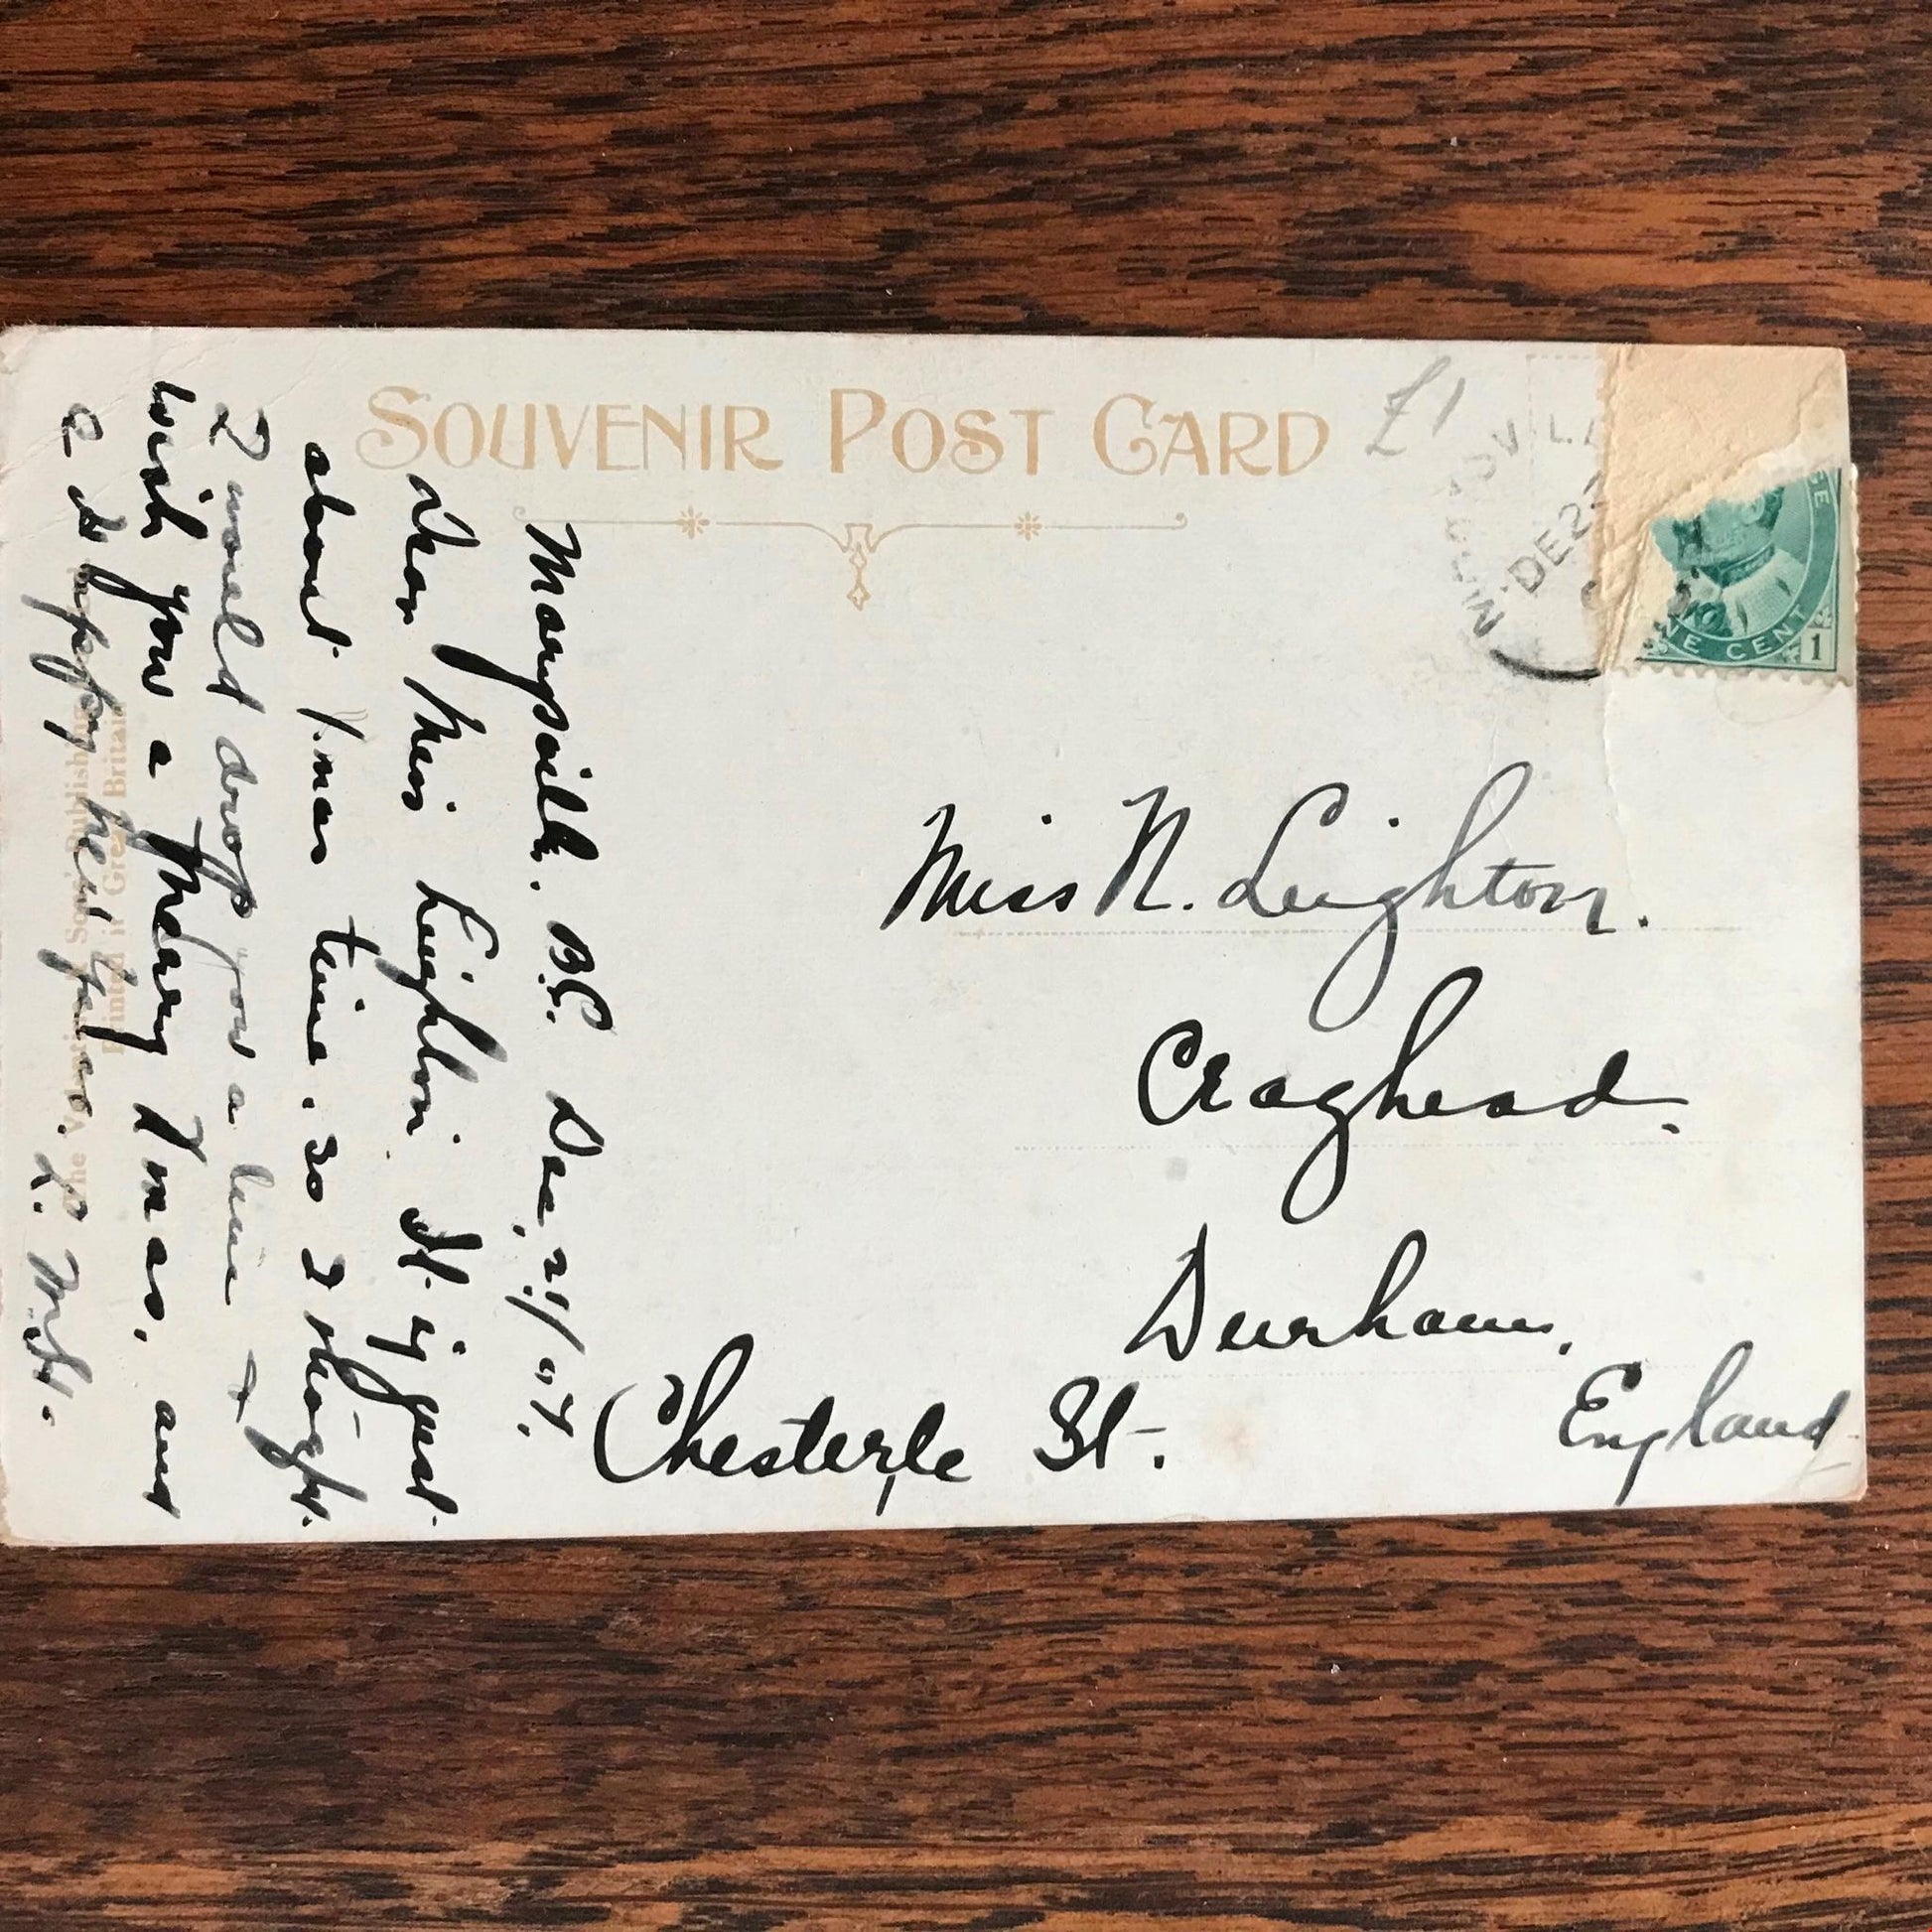 SOUVENIR POST CARD
£1
DE 2
ONE CENT
1
Miss N. Leighton.
Craghead.
Durham,
England
Chesterle St.
Marysville. B.C. Dec, 21/07.
Dear Miss Leighton. It is just
about Xmas time. so I thought
I would drop you a line +
wish you a Merry Xmas, and
a Happy New Year.
Printed in Great Britain